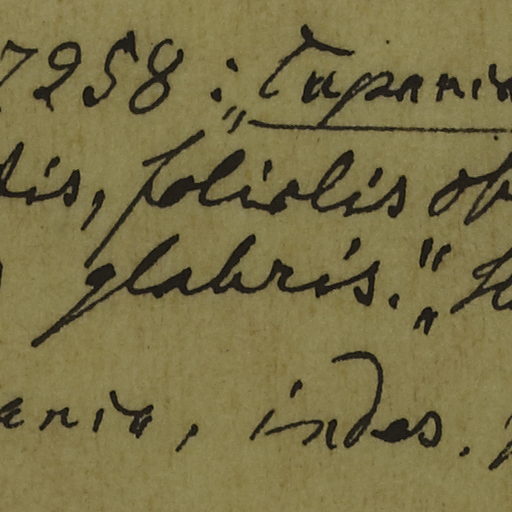 7258 : „Cupania
tis, foliolis ob
glabris.“ „
ania, indes.